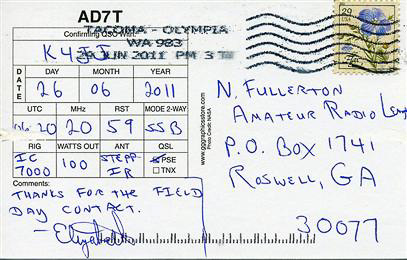 AD7T
Confirming QSO With:
K4JJ
TACOMA - OLYMPIA
WA 983
JUN 2011 PM 3
29
USA
DATE
DAY MONTH YEAR
26 06 2011
UTC MHz RST MODE 2-WAY
2020 59 SSB
RIG WATTS OUT ANT QSL
IC 7000 100 STEPP IR PSE
TNX
Comments:
THANKS FOR THE FIELD
DAY CONTACT.
- Elizabeth
www.gggraphicsstore.com
Photo Credit: NASA
N. FULLERTON
AMATEUR RADIO
P.O. BOX 1741
ROSWELL, GA
30077